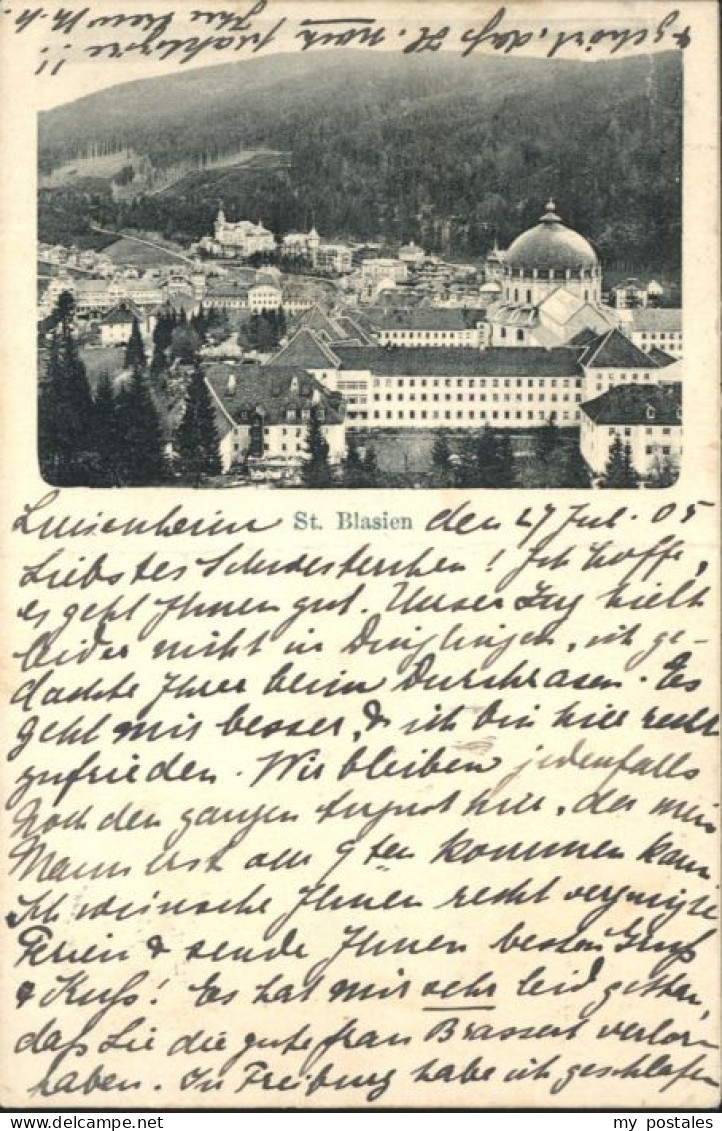 St. Blasien
Luisenheim den 27 Jul. 05
Liebstes Schwesterchen! Ich hoffe,
es geht Ihnen gut. Unser Zug hielt
leider nicht in Dinglingen, ich ge-
dachte Ihrer beim Durchrasen. Es
geht mir besser, & ich bin hier recht
zufrieden. Wir bleiben jedenfalls
noch den ganzen August hier, da mein
Mann erst am 9ten kommen kann
Ich wünsche Ihnen recht vergnügte
Ferien & sende Ihnen besten Gruß
& Kuß! Es hat mir sehr leid getan,
daß Sie die gute Frau Brassert verlor
haben. In Freiburg habe ich geschlafen
& gehört, daß H. nach
!!
my postales